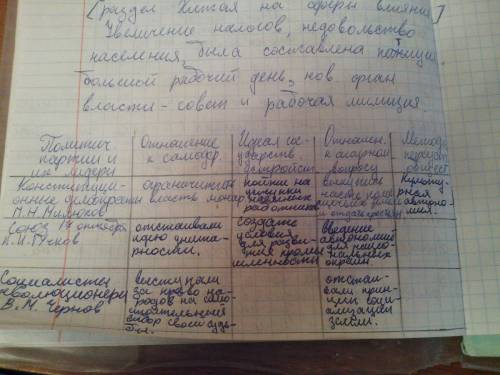 [раздел Китая на сферы влияния]
Увеличение налогов, недовольство
населения, была составлена петиция
большой рабочий день, нов. орган
власти - совет и рабочая милиция.
Политич. партии и их лидеры
Отношение к самодер.
Идеал государств.
Отношен. к аграрной вопросу
Метод
Конституционные демократы
П.Н Милюков
ограничить власть монар
пойти на уступки наёмным работникам
часть
Культурная автономия.
Союз 17 октября
А.И.Гучков
отстаивали идею унитарности.
создать условия для развития промышленности
введение автономии для национальных окраин
Социалисты революционеры
В.М. Чернов
выступали за право народов на самостоятельный выбор своей судьбы.
отстаивали принципы социализации земли.